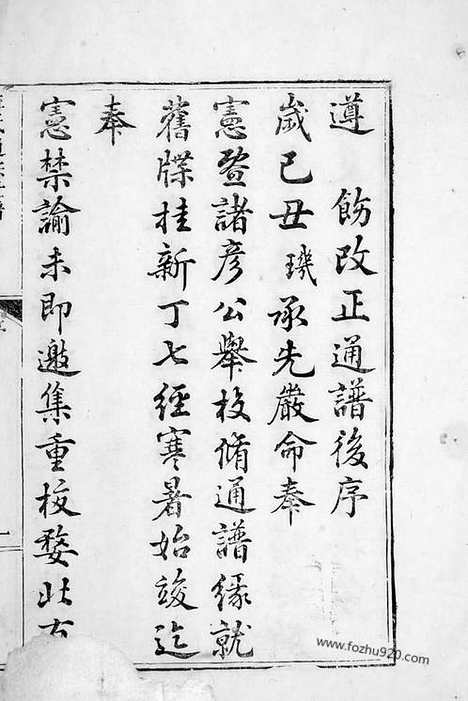 遵　飭改正通譜後序
歲己丑璣承先嚴命奉
憲暨諸彥公舉校脩通譜緣就
舊牒挂新丁七經寒暑始竣迄
奉
憲禁諭未即邀集重校婺北
www.fozhu920.com